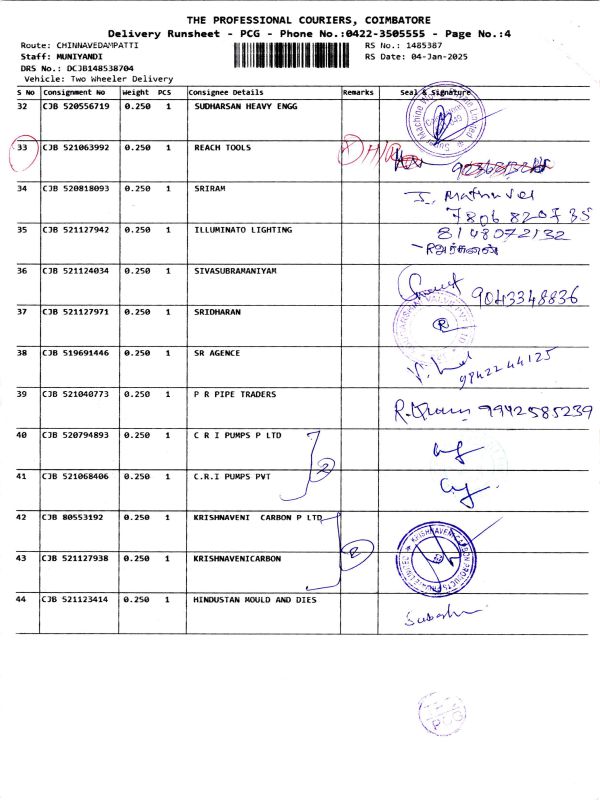 THE PROFESSIONAL COURIERS, COIMBATORE
Delivery Runsheet - PCG - Phone No.:0422-3505555 - Page No.:4
Route: CHINNAVEDAMPATTI RS No.: 1485387
Staff: MUNIYANDI RS Date: 04-Jan-2025
DRS No.: DCJB148538704
Vehicle: Two Wheeler Delivery
S No Consignment No Weight PCS Consignee Details Remarks Seal & Signature
32 CJB 520556719 0.250 1 SUDHARSAN HEAVY ENGG
33 CJB 521063992 0.250 1 REACH TOOLS
34 CJB 520818093 0.250 1 SRIRAM
7806820735
35 CJB 521127942 0.250 1 ILLUMINATO LIGHTING 8148072132
36 CJB 521124034 0.250 1 SIVASUBRAMANIYAM
9043348836
37 CJB 521127971 0.250 1 SRIDHARAN
38 CJB 519691446 0.250 1 SR AGENCE 9842244125
39 CJB 521040773 0.250 1 P R PIPE TRADERS
9942585239
40 CJB 520794893 0.250 1 C R I PUMPS P LTD
2
41 CJB 521068406 0.250 1 C.R.I PUMPS PVT
42 CJB 80553192 0.250 1 KRISHNAVENI CARBON P LTD
2
43 CJB 521127938 0.250 1 KRISHNAVENICARBON
44 CJB 521123414 0.250 1 HINDUSTAN MOULD AND DIES
PCG